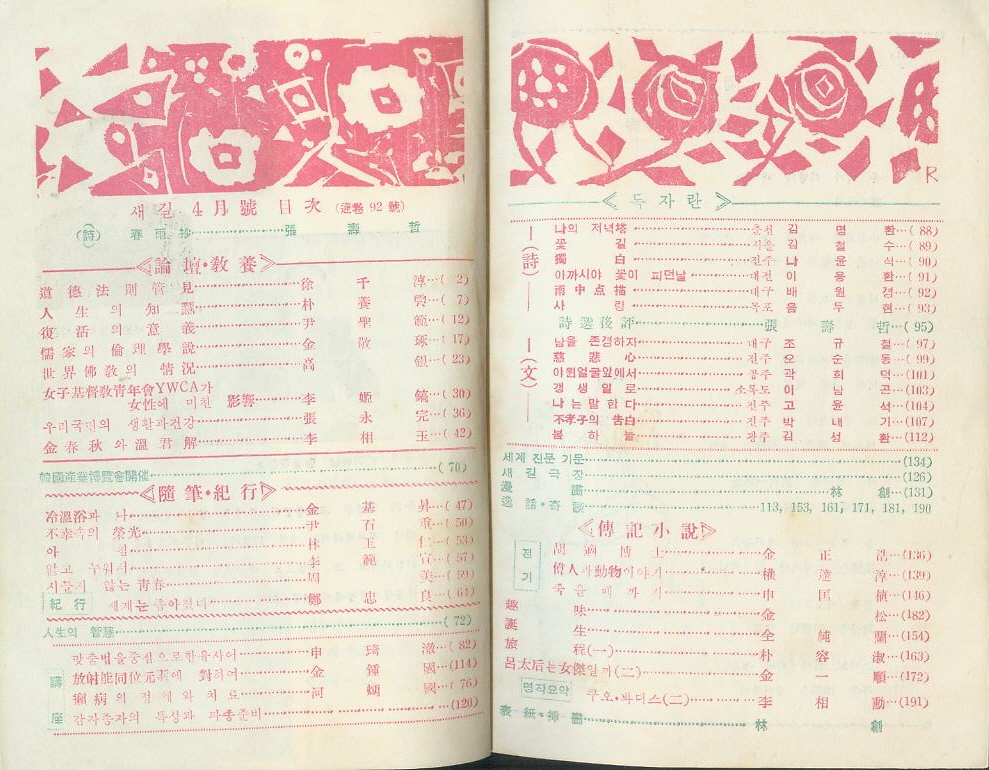 새길 4月號 目次 (逆卷 92 號)
(詩) 春雨抄 張壽哲
《論壇·敎養》
道德法則管見 徐千淳 (2)
人生의 知慧 朴善 (7)
復活의 意義 尹聖範 (12)
儒家의 倫理學說 金敬琢 (17)
世界佛敎의 情況 高銀 (23)
女子基督敎靑年會YWCA가
女性에 미친 影響 李姬鎬 (30)
우리국민의 생활과건강 張永完 (36)
金春秋와 溫君解 李相玉 (42)
韓國産業博覽會開催 (70)
《隨筆·紀行》
冷溫浴과 나 金基昇 (47)
不幸속의 榮光 尹石重 (50)
아 林玉仁 (53)
앓고 누워서 李範宣 (57)
시들지 않는 靑春 周美 (59)
紀行 세계는 좁아졌다 鄭忠良 (61)
人生의 智慧 (72)
講座
맞춤법을중심으로한유사어 申琦澈 (82)
放射能同位元素에 對하여 金鍾國 (114)
癩病의 정체와 치료 河國 (76)
감자종자의 특성과 파종준비 (120)
《독자란》
(詩)
나의 저녁塔 춘천 김명환 (88)
꽃길 서울 김철수 (89)
獨白 전주 나윤식 (90)
아까시아 꽃이 피던날 대전 이용환 (91)
雨中点描 대구 배원 (92)
사랑 목포 음두현 (93)
詩選後評 張壽哲 (95)
(文)
남을 존경하자 대구 조규철 (97)
慈悲心 전주 오순동 (99)
야윈얼굴앞에서 공주 곽희덕 (101)
갱생일로 소록도 이남곤 (103)
나는말한다 전주 고윤석 (104)
不孝子의 告白 전주 박내기 (107)
봄하늘 광주 김성환 (112)
세계 진문 기문 (134)
새길극장 (126)
漫畵 林創 (131)
逸話·奇談 113, 153, 161, 171, 181, 190
《傳記小說》
전기
胡適博士 金正浩 (136)
偉人과動物이야기 淳 (139)
죽을때까지 申 (146)
趣味 金松 (182)
誕生 全純蘭 (154)
旅程(一) 朴容淑 (163)
呂太后는女傑일까(二) 金一順 (172)
명작요약 쿠오·봐디스(二) 李相勳 (191)
表紙·揷畵 林創
R